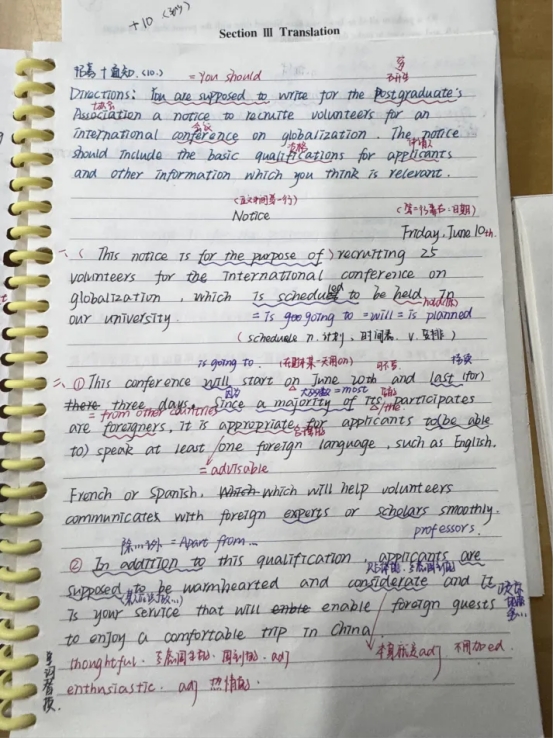 +10
Section III Translation
通知.(10.) = You should
Directions: You are supposed to write for the Postgraduate's
协会
Association a notice to recruite volunteers for an
会议
international conference on globalization. The notice
资格 申请人
should include the basic qualifications for applicants
and other information which you think is relevant.
(正文中间第一行)
Notice
Friday, June 10th.
一、(This notice is for the purpose of) recruiting 25
volunteers for the International conference on
globalization, which is scheduled to be held in
our university. = is goo going to = will = is planned
(schedule n. 计划, 时间表. v. 安排)
is going to.
二、① This conference will start on June 20th and last (for)
因为 大多数 = most
there three days. Since a majority of its participates
= from other countries
are foreigners, it is appropriate for applicants to(be able
to) speak at least one foreign language, such as English.
= advisable
French or Spanish, Which which will help volunteers
communicates with foreign experts or scholars smoothly.
professors.
= Apart from...
② In addition to this qualification applicants are
supposed to be warmhearted and considerate and it
is your service that will enble enable foreign guests
to enjoy a comfortable trip in China.
本身就是adj 不用加ed.
thoughtful. 考虑周到的. 周到的. adj
enthusiastic. adj 热情的.
单词替换.